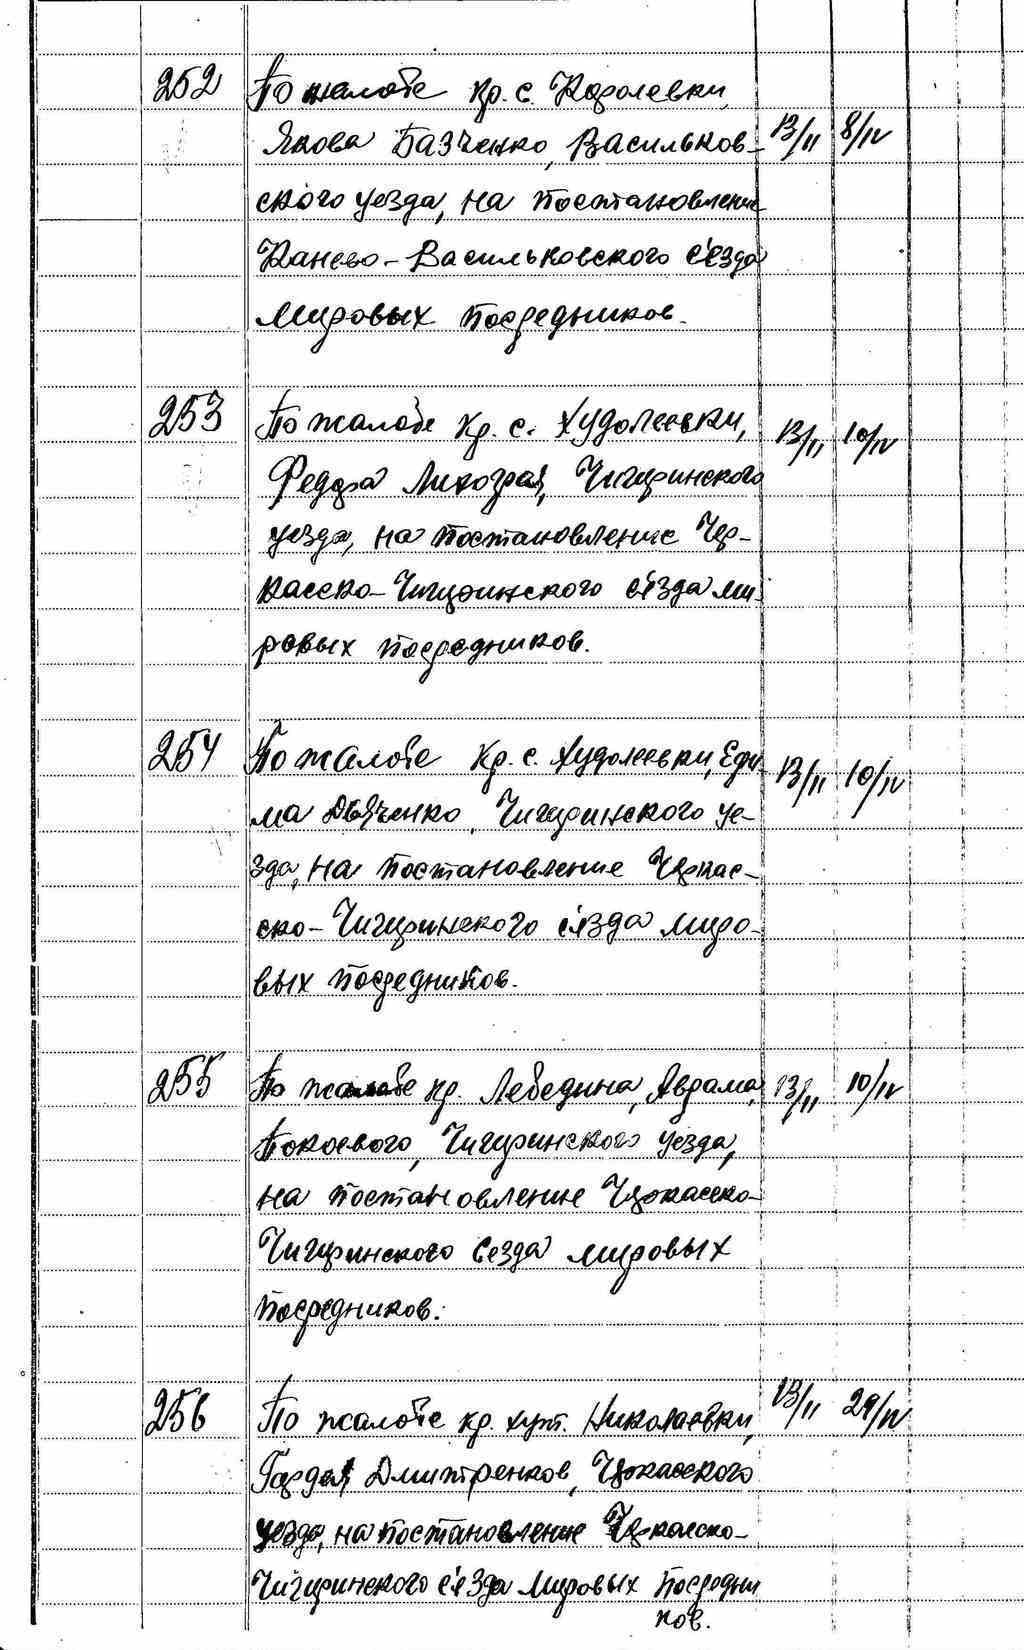 252 По жалобе кр. с. Королевки,
Якова Базченко, Васильков- 13/II 8/IV
ского уезда, на постановление
Канево-Васильковского с'езда
мировых посредников.
253 По жалобе кр. с. Худолеевки, 13/II 10/IV
Федора Лихограя, Чигиринского
уезда, на постановление Чер-
касско-Чигиринского с'езда ми-
ровых посредников.
254 По жалобе кр. с. Худолеевки, Ефи- 13/II 10/IV
ма Дьяченко, Чигиринского уе-
зда, на постановление Черкас-
ско-Чигиринского с'езда миро-
вых посредников.
255 По жалобе кр. Лебедина, Аврама 13/II 10/IV
Бокоевого, Чигиринского уезда,
на постановление Черкасско-
Чигиринского сезда мировых
посредников.
256 По жалобе кр. хут. Николаевки, 13/II 29/IV
Гордея Дмитренков, Черкасского
уезда, на постановление Черкасско-
Чигиринского с'езда мировых посредни
ков.